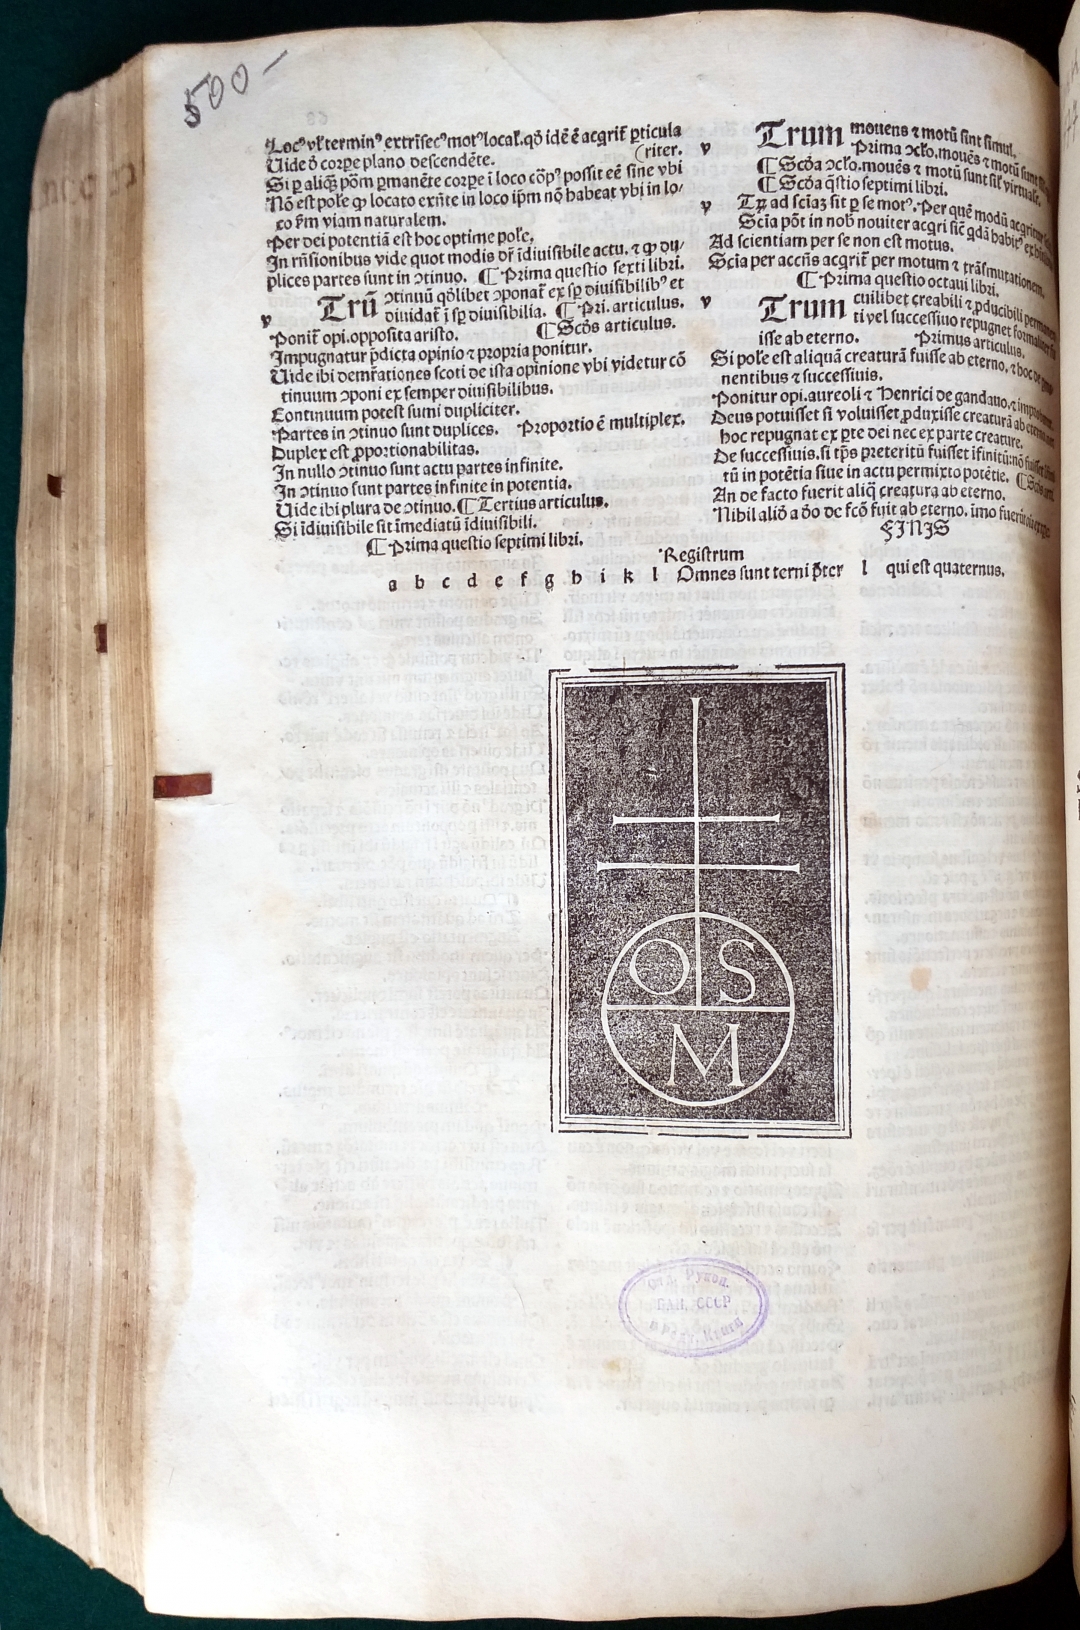 500-
Locꝰ vł terminꝰ extrīsecꝰ motꝰ local̄. qō idē ē̄ acgrit̄ p̱ticula
(riter.
Uide ð corp̱e plano descendēte.
Si p̱ aliq̄ pōm p̱manēte corp̱e ī loco cōp̱ꝰ possit eē sine vbi
Nō est pole ꝙ locato exn̄te in loco ip̄m nō habeat vbi in lo/
co s̄m viam naturalem.
Per dei potentiā est hoc optime pole.
In rn̄sionibus vide quot modis dr̄ īdiuisibile actu. ⁊ ꝙ du/
plices partes sunt in ↄtinuo. ¶ Prima questio sexti libri.
v Trū ↄtinuū qōlibet ↄponat̄ ex sp̱ diuisibilibꝰ et
diuidat̄ ī sp̱ diuisibilia. ¶ Pri. articulus.
Ponit̄ opi. opposita aristo. ¶ Scōs articulus.
Impugnatur p̄dicta opinio ⁊ propria ponitur.
Uide ibi demr̄ationes scoti de ista opinione vbi videtur cō
tinuum ↄponi ex semper diuisibilibus.
Continuum potest sumi dupliciter.
Partes in ↄtinuo sunt duplices. Proportio ē multiplex.
Duplex est ꝓportionabilitas.
In nullo ↄtinuo sunt actu partes infinite.
In ↄtinuo sunt partes infinite in potentia.
Uide ibi plura de ↄtinuo. ¶ Tertius articulus.
Si īdiuisibile sit īmediatū īdiuisibili.
¶ Prima questio septimi libri.
v Trum mouens ⁊ motū sint simul.
Prima ↄcło. mouēs ⁊ motū sunt
¶ Scōa ↄcło. mouēs ⁊ motū sunt sił virtualr̄.
¶ Scōa q̄stio septimi libri.
v Tꝝ ad sciaꝫ sit p̱ se motꝰ. Per quē modū acgritur
Scia pōt in nob̄ nouiter acgri sic̄ gdā habitꝰ
Ad scientiam per se non est motus.
Scia per accn̄s acgrit̄ per motum ⁊ trāsmutationem.
¶ Prima questio octaui libri.
v Trum cuilibet creabili ⁊ ꝓducibili
ti vel successiuo repugnet formaliter
isse ab eterno. Primus articulus.
Si pole est aliquā creaturā fuisse ab eterno, ⁊ hoc de
nentibus ⁊ successiuis.
Ponitur opi. aureoli ⁊ Henrici de gandauo. ⁊
Deus potuisset si voluisset ꝓduxisse creaturā ab
hoc repugnat ex p̱te dei nec ex parte creature.
De successiuis. si tp̄s preteritū fuisset īfinitū: nō
tū in potētia siue in actu permixto potētie. ¶
An de facto fuerit aliq̄ creatura ab eterno.
Nihil aliō a ðo de fc̄ō fuit ab eterno. imo
FINIS
Registrum
a b c d e f g h i k l Omnes sunt terni p̄ter l qui est quaternus.
O S
M
Отд. Рукоп.
БАН, СССР
и Редк. Книги